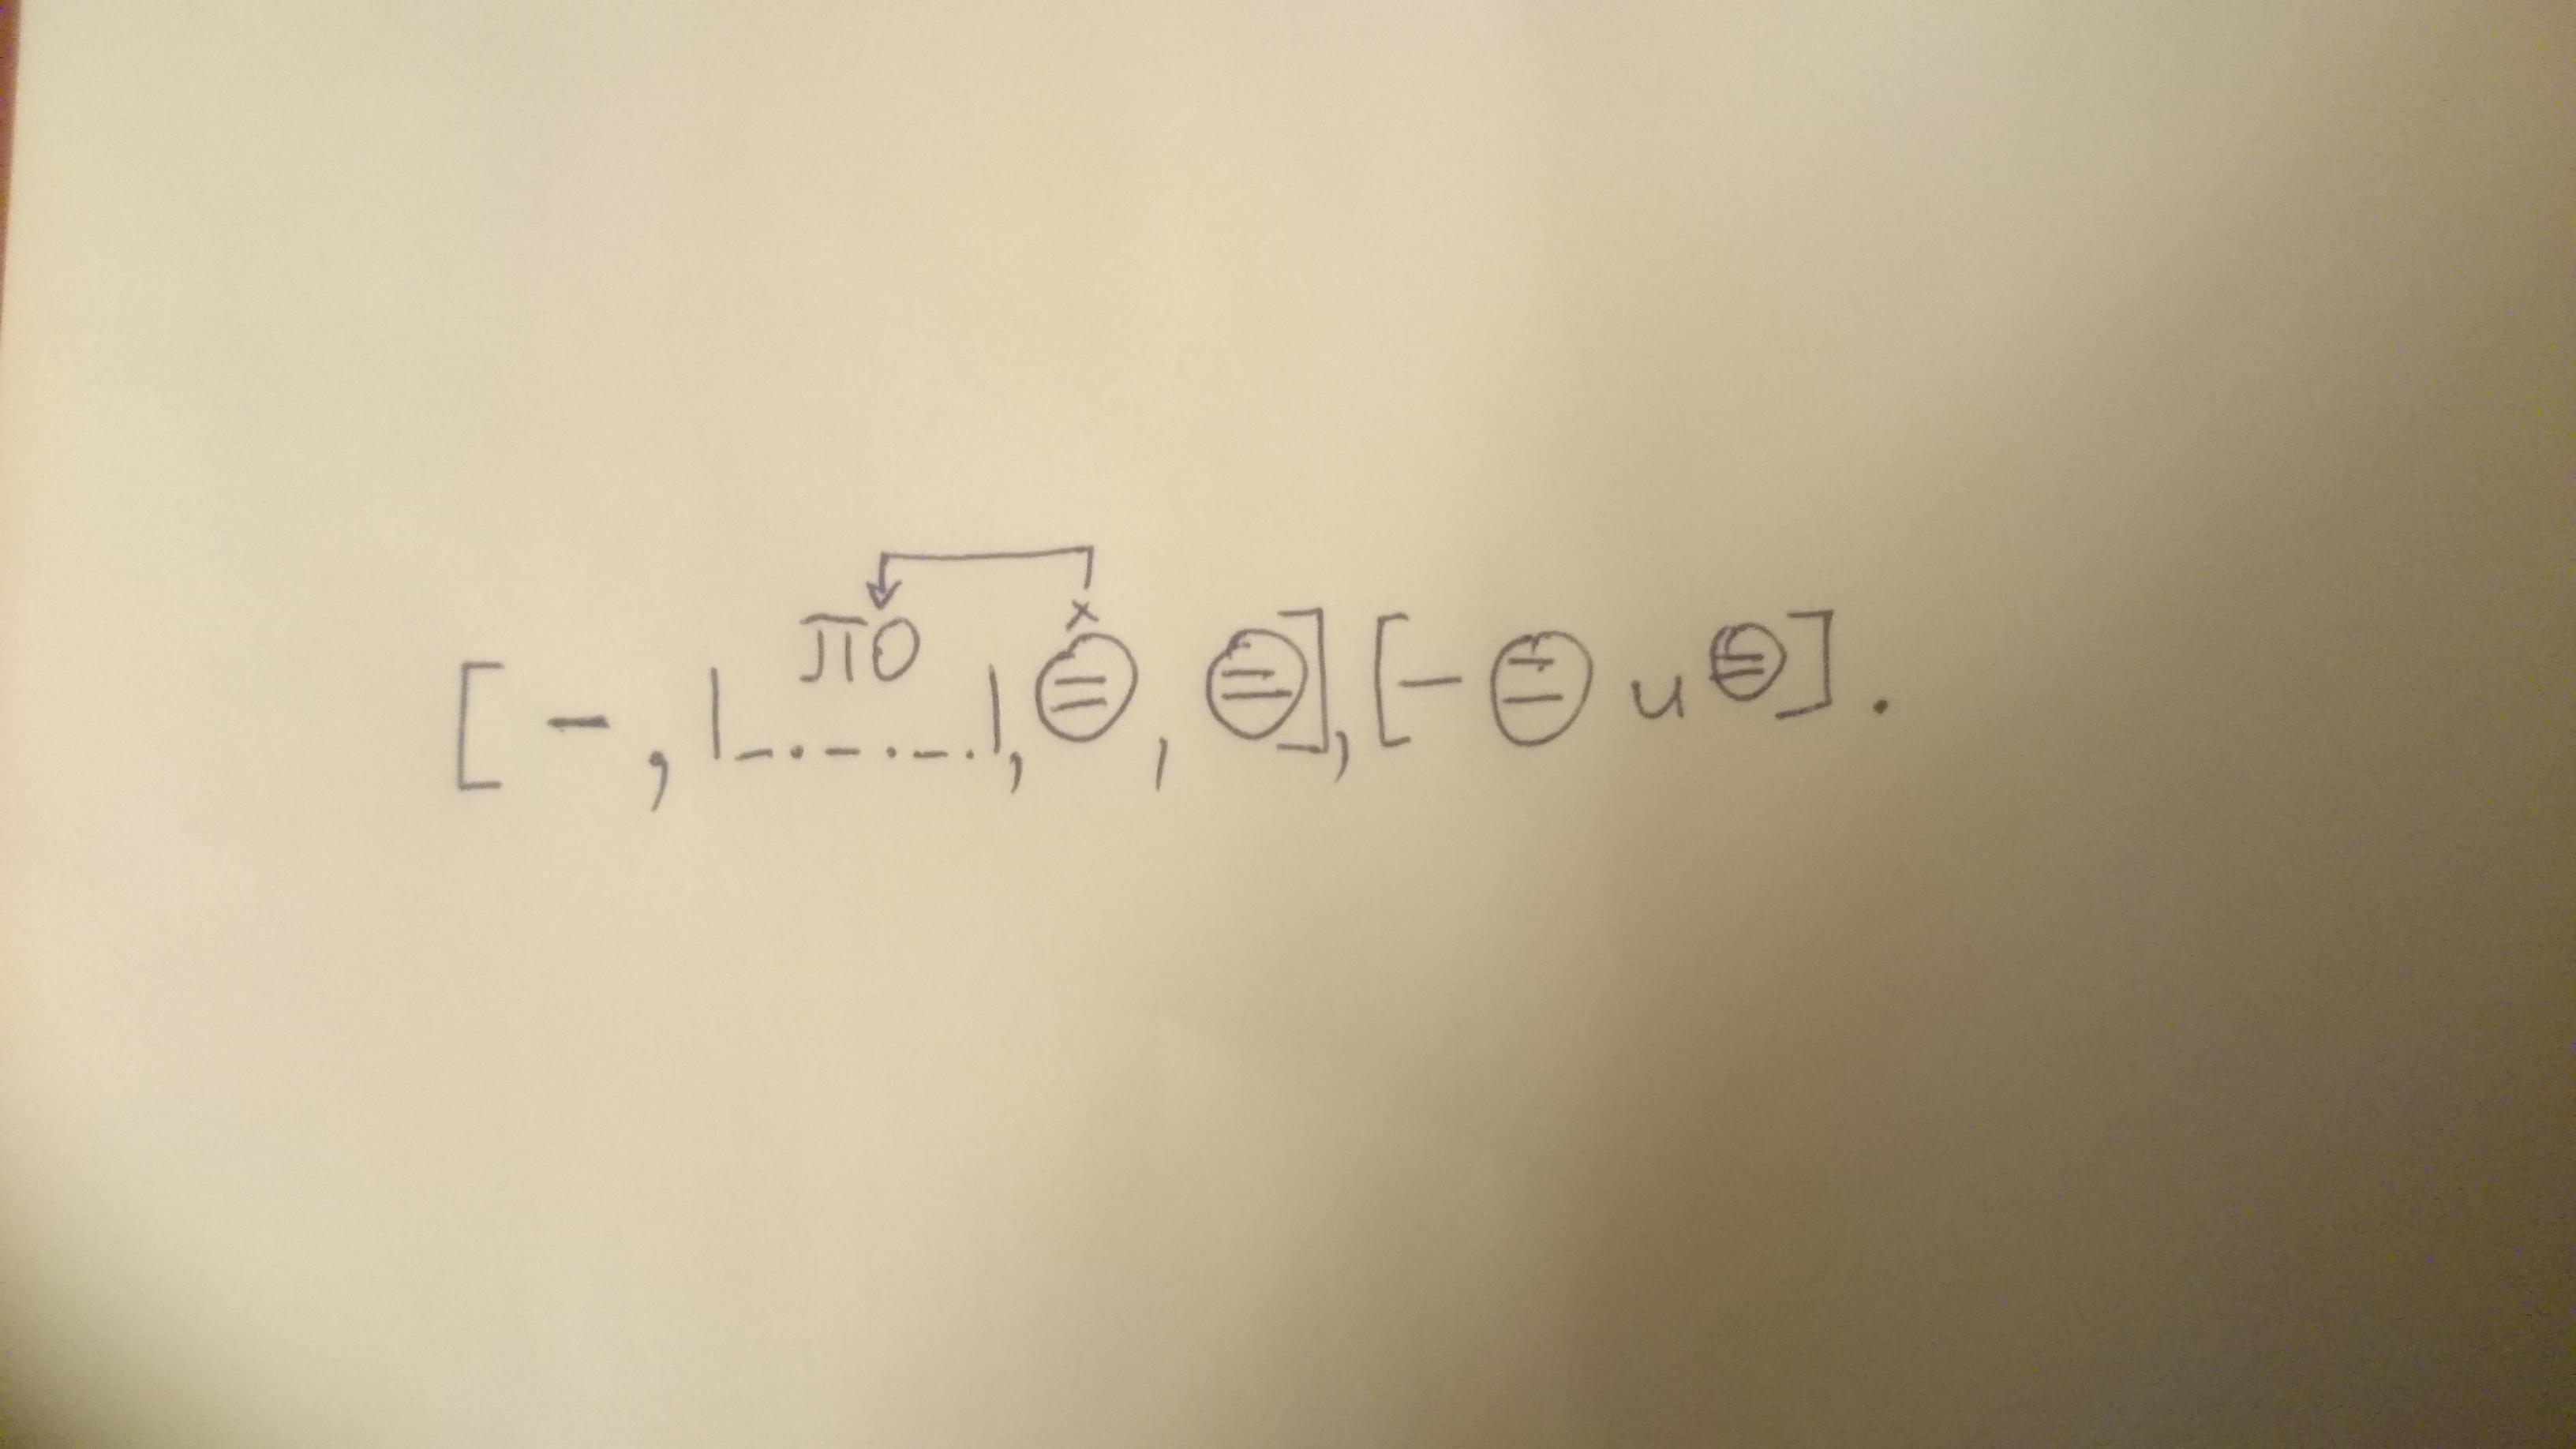 ПО
[ – , |_._._.|, ⊜ , ⊜], [– ⊜ и ⊜].